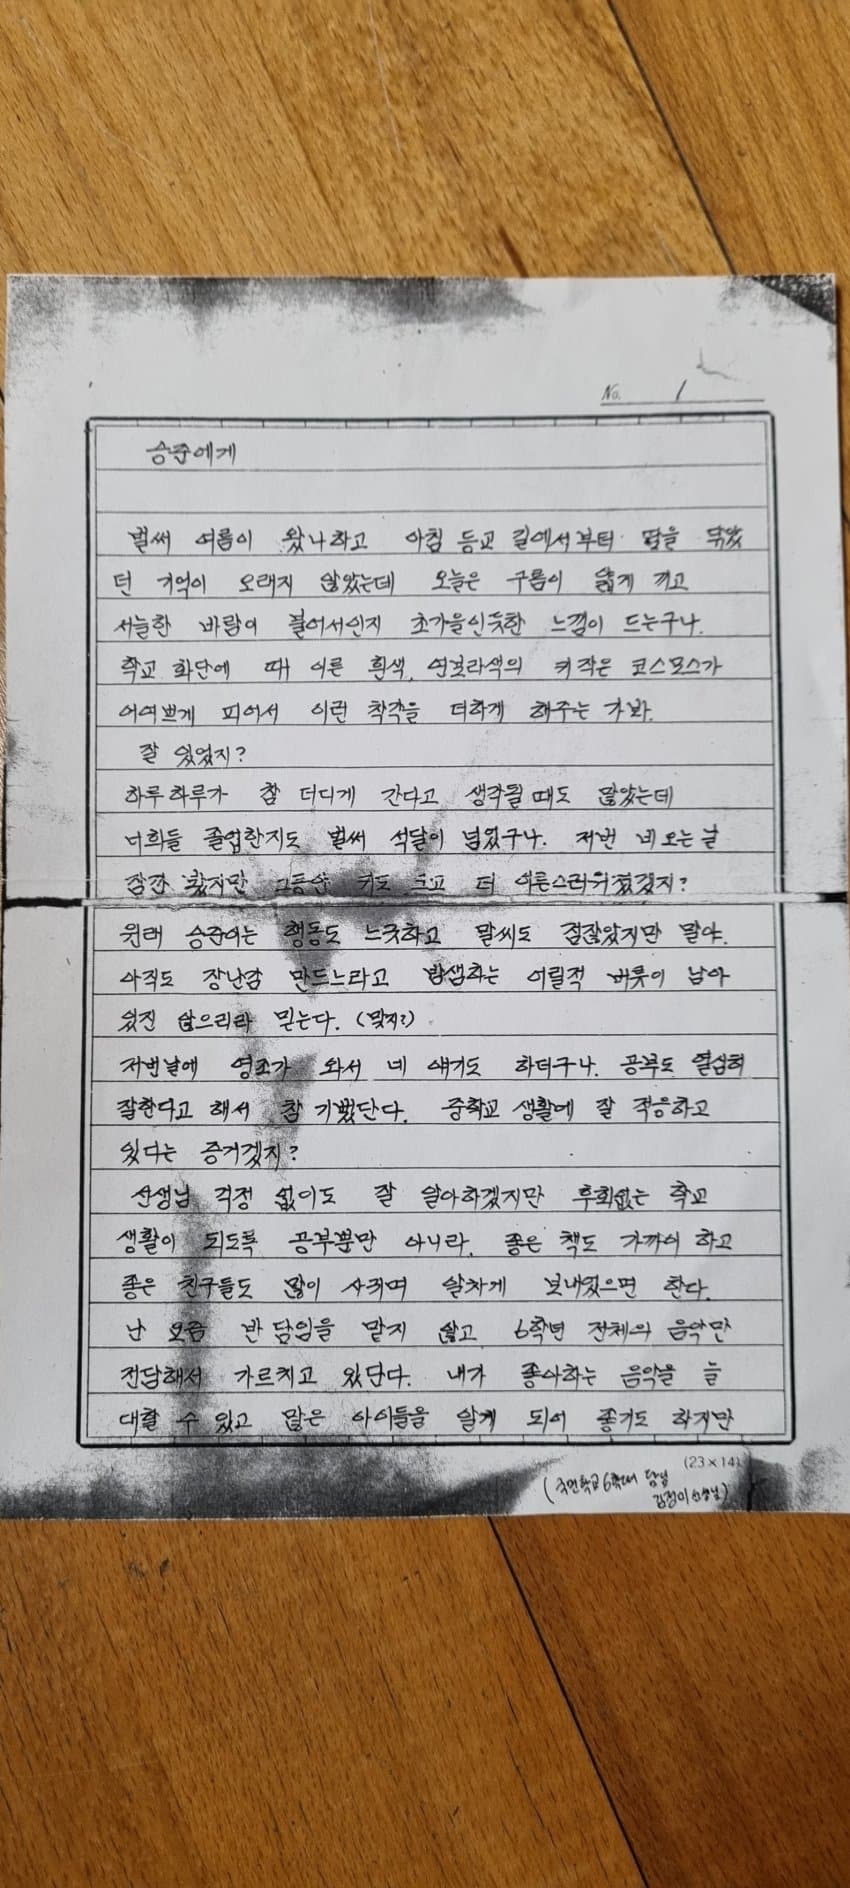 No. 1
승준에게
벌써 여름이 왔나하고 아침 등교 길에서부터 땀을 닦았
던 기억이 오래지 않았는데 오늘은 구름이 엷게 끼고
서늘한 바람이 불어서인지 초가을인듯한 느낌이 드는구나.
학교 화단에 때 이른 흰색, 연보라색의 키 작은 코스모스가
어여쁘게 피어서 이런 착각을 더하게 해주는 가봐.
잘 있었지?
하루하루가 참 더디게 간다고 생각될 때도 많았는데
너희들 졸업한지도 벌써 석달이 넘었구나. 저번 네 오는 날
잠깐 봤지만 그동안 키도 크고 더 어른스러워졌겠지?
원래 승준이는 행동도 느긋하고 말씨도 점잖았지만 말야.
아직도 장난감 만드느라고 밤샘하는 어릴적 버릇이 남아
있진 않으리라 믿는다. (맞지?)
저번날에 영조가 와서 네 얘기도 하더구나. 공부도 열심히
잘한다고 해서 참 기뻤단다. 중학교 생활에 잘 적응하고
있다는 증거겠지?
선생님 걱정 없이도 잘 알아하겠지만 후회없는 학교
생활이 되도록 공부뿐만 아니라, 좋은 책도 가까이 하고
좋은 친구들도 많이 사귀며 알차게 보내었으면 한다.
난 요즘 반 담임을 맡지 않고 6학년 전체의 음악만
전담해서 가르치고 있단다. 내가 좋아하는 음악을 늘
대할 수 있고 많은 아이들을 알게 되어 좋기도 하지만
(23×14)
(국민학교 6학년 담임
김정미 선생님)